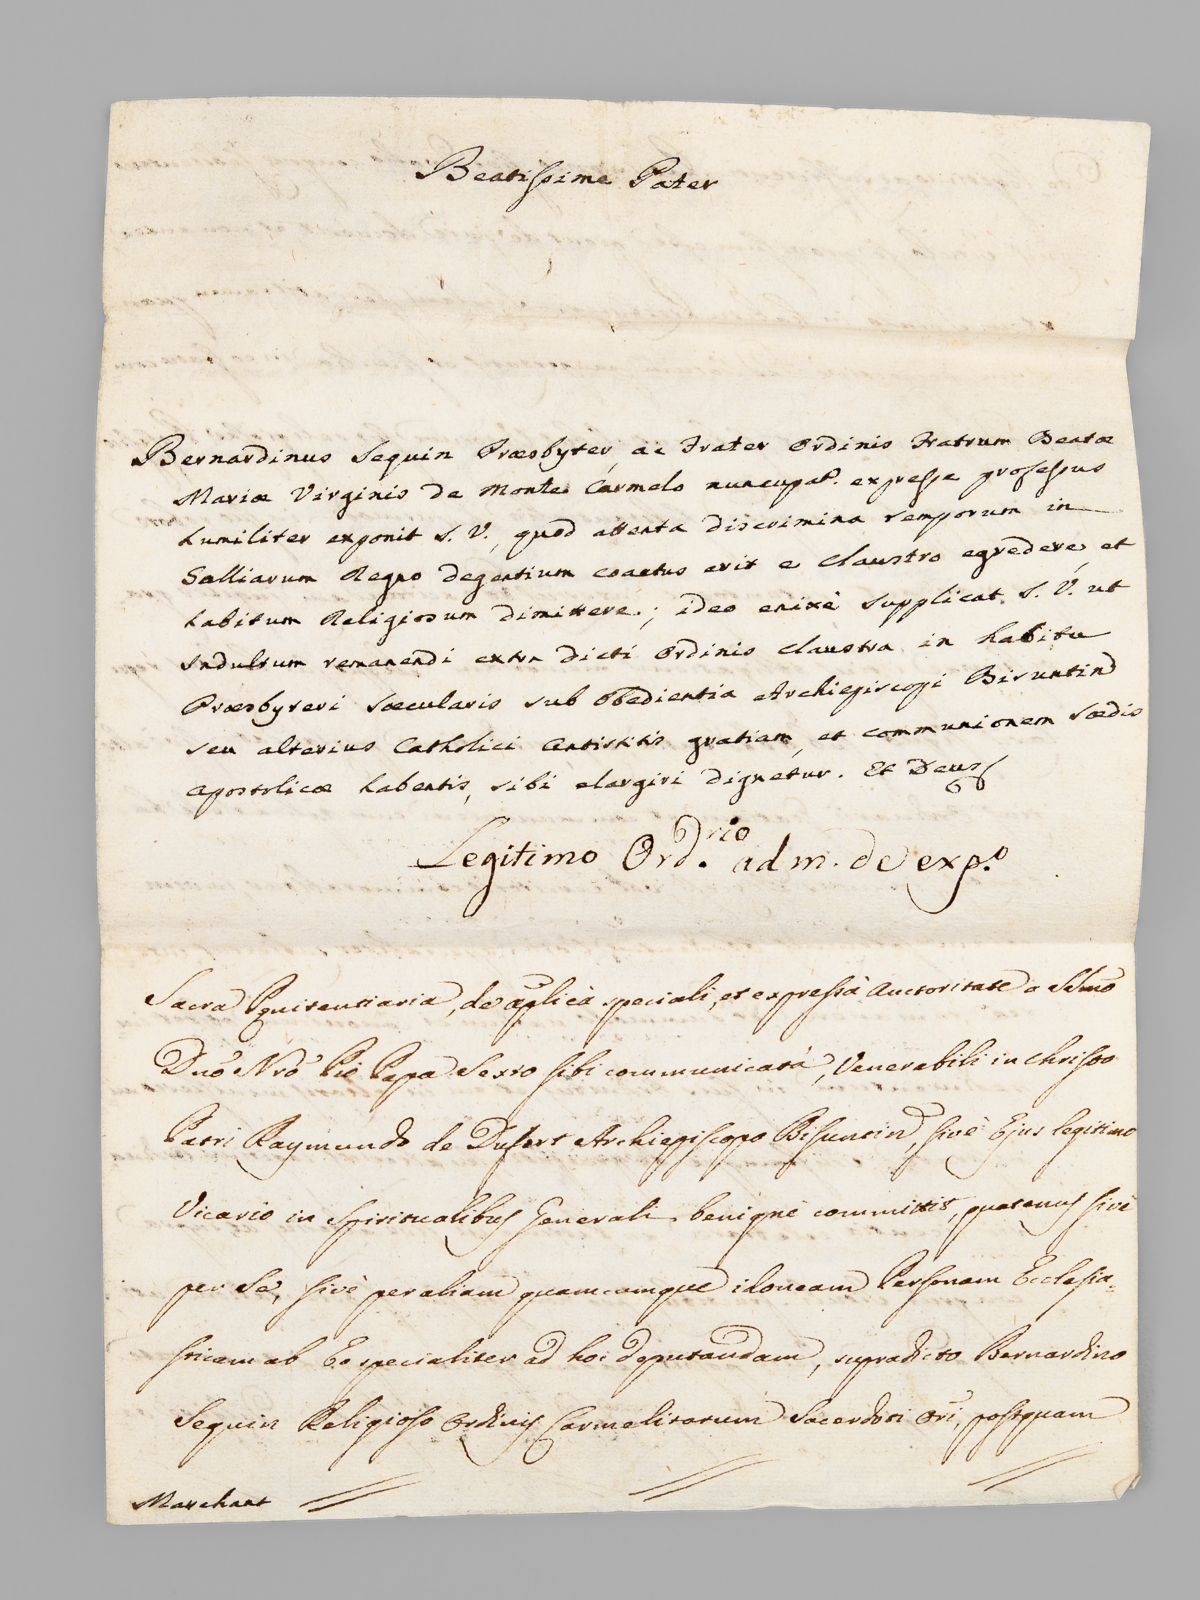 Beatissime Pater
Bernardinus Seguin Præsbyter, ac Frater Ordinis Fratrum Beatæ
Mariæ Virginis de Monte Carmelo nuncupat. expresse professus
humiliter exponit S. V., quod attenta discrimina temporum in
Galliarum Regno degentium coactus erit e claustro egredere, et
habitum Religiosum dimittere; ideo enixè supplicat S. V. ut
Indultum remanendi extra dicti Ordinis claustra in habitu
Præsbyteri Sæcularis sub Obedientia Archiepiscopi Bisuntin
seu alterius Catholici Antistitis gratiam, et communionem Sædis
Apostolicæ habentis, sibi elargiri dignetur. Et Deus
Legitimo Ord.rio adm. de exp.o
Sacra Pœnitentiaria, de aplica speciali, et expressâ Auctoritate a SSmo
Dno Nro Pio Papa Sexto sibi communicatâ, Venerabili in Christo
Patri Raymundo de Dufort Archiepiscopo Bisuntin, sivè Ejus legitimo
Vicario in Spiritualibus Generali benignè committit, quatenus sivè
per Se, sivè per aliam quamcumque idoneam Personam Ecclesia=
sticam ab Eo specialiter ad hoc deputandam, supradicto Bernardino
Seguin Religioso Ordinis Carmelitarum Sacerdoti Ori, postquam
Marchant